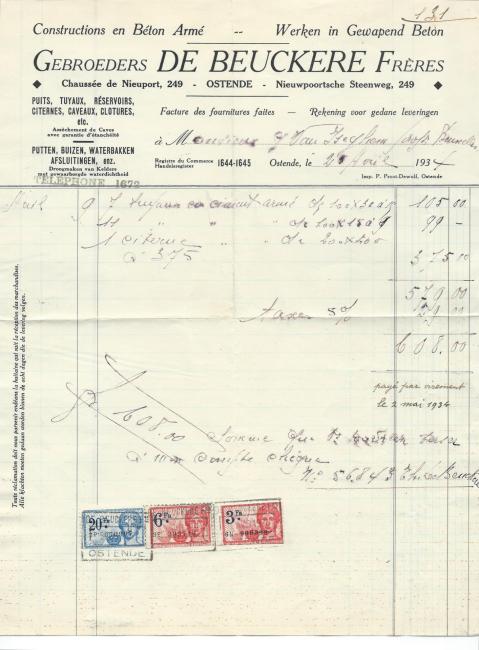 131
Constructions en Béton Armé -- Werken in Gewapend Beton
GEBROEDERS DE BEUCKERE FRÈRES
◆ Chaussée de Nieuport, 249 - OSTENDE - Nieuwpoortsche Steenweg, 249 ◆
PUITS, TUYAUX, RÉSERVOIRS,
CITERNES, CAVEAUX, CLOTURES,
etc.
Assèchement de Caves
avec garantie d'étanchéité
PUTTEN, BUIZEN, WATERBAKKEN
AFSLUITINGEN, enz.
Droogmaken van Kelders
met gewaarborgde waterdichtheid
TÉLÉPHONE 1672
Facture des fournitures faites - Rekening voor gedane leveringen
à Monsieur
Registre du Commerce
Handelsregister 1644-1645 Ostende, le 2 Avril 1934
Imp. P. Proot-Dewulf, Ostende
9 7 tuyaux en ciment armé 105 00
11 " " " de 99 -
1 citerne " de
à 375 375 00
579 00
taxe 5% 29 00
608.00
payé par virement
le 2 mai 1934
608.00
Somme
à mon compte chèque
Toute réclamation doit nous parvenir endéans la huitaine qui suit la réception des marchandises.
Alle klachten moeten gedaan worden binnen de acht dagen die de levering volgen.
20 Fr
6 Fr
3 Fr
OSTENDE